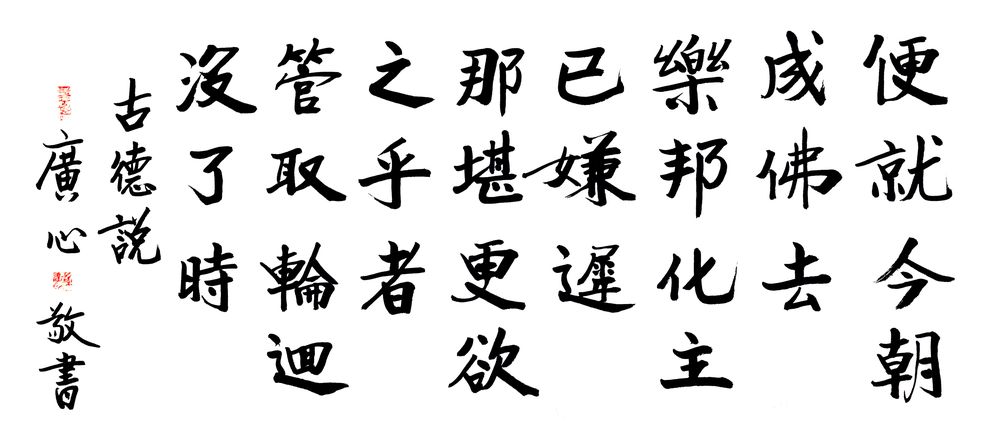 便就今朝
成佛去
樂邦化主
已嫌遲
那堪更欲
之乎者
管取輪迴
沒了時
古德說
廣心敬書